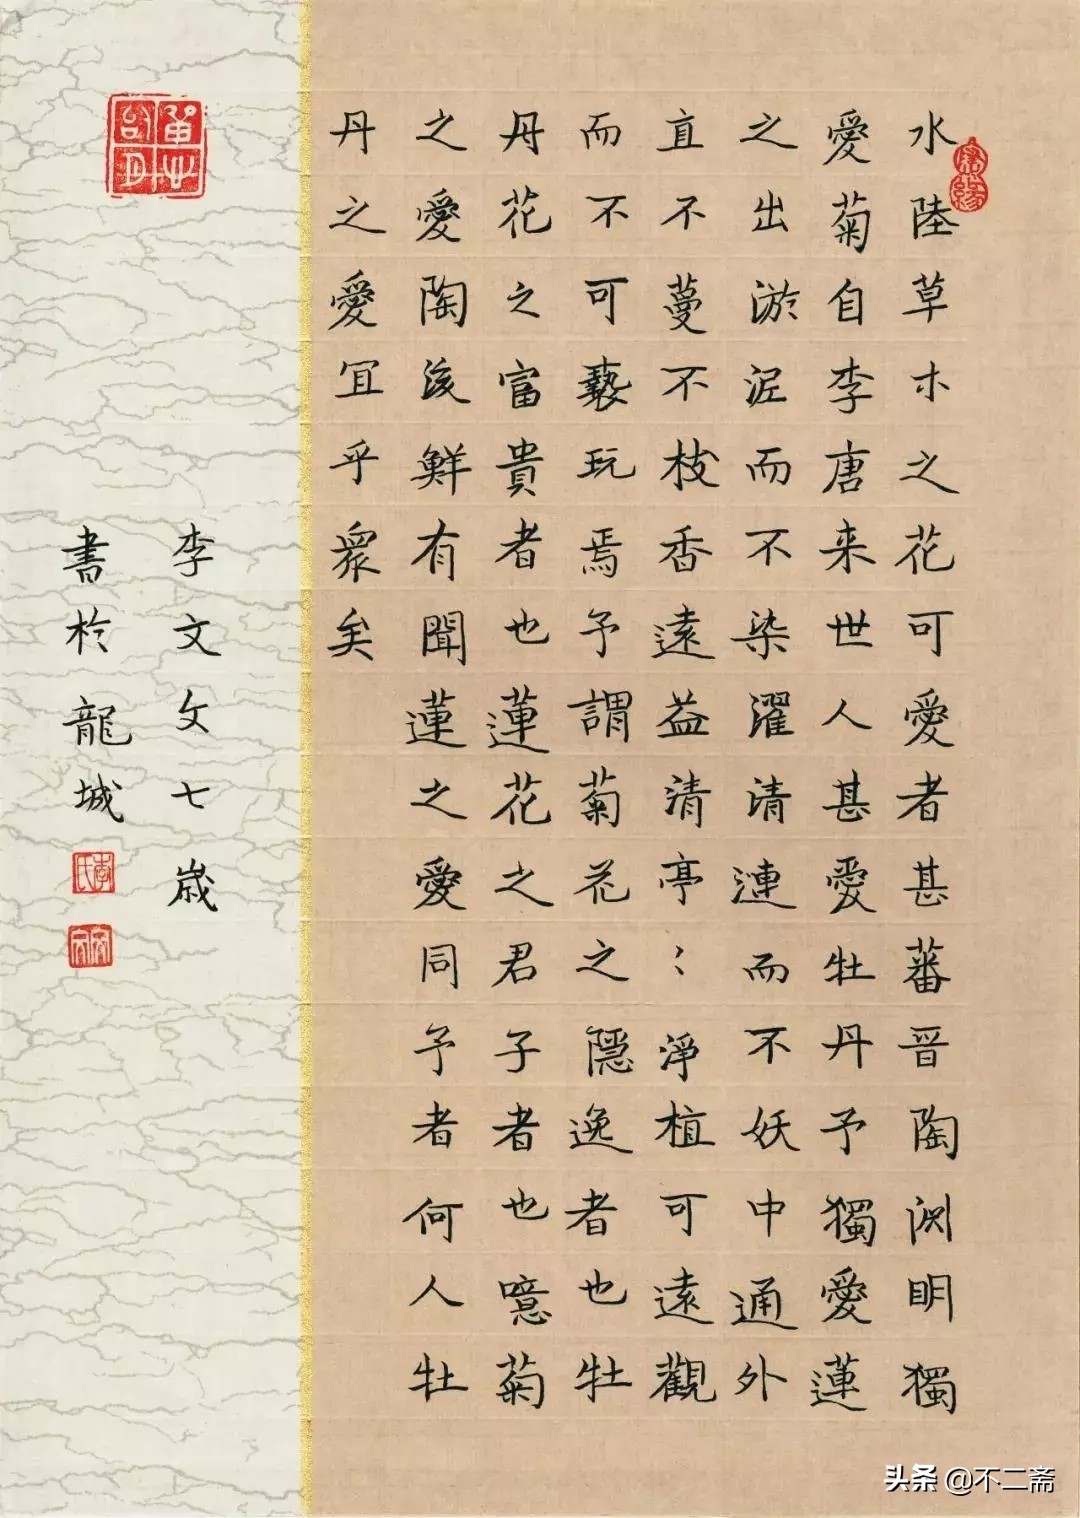 水陸草木之花可愛者甚蕃晉陶渊明獨
愛菊自李唐来世人甚愛牡丹予獨愛蓮
之出淤泥而不染濯清漣而不妖中通外
直不蔓不枝香遠益清亭〻淨植可遠觀
而不可褻玩焉予謂菊花之隱逸者也牡
丹花之富貴者也蓮花之君子者也噫菊
之愛陶後鮮有聞蓮之愛同予者何人牡
丹之愛宜乎衆矣
李文文七歲
書於龍城
李氏
文文
头条 @不二斋